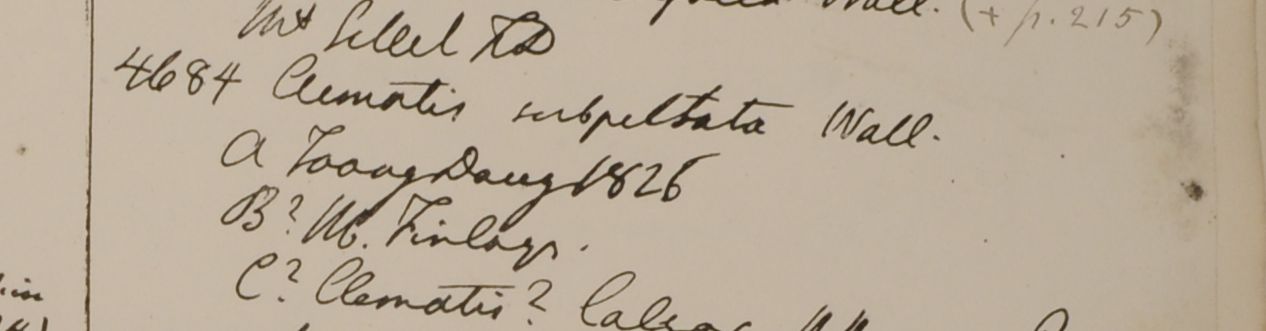 Wall. (+ p. 215)
Mt Sillet FD
4684 Clematis subpeltata Wall.
A Toong Dong 1826
B? M. Finlays.
C? Clematis?